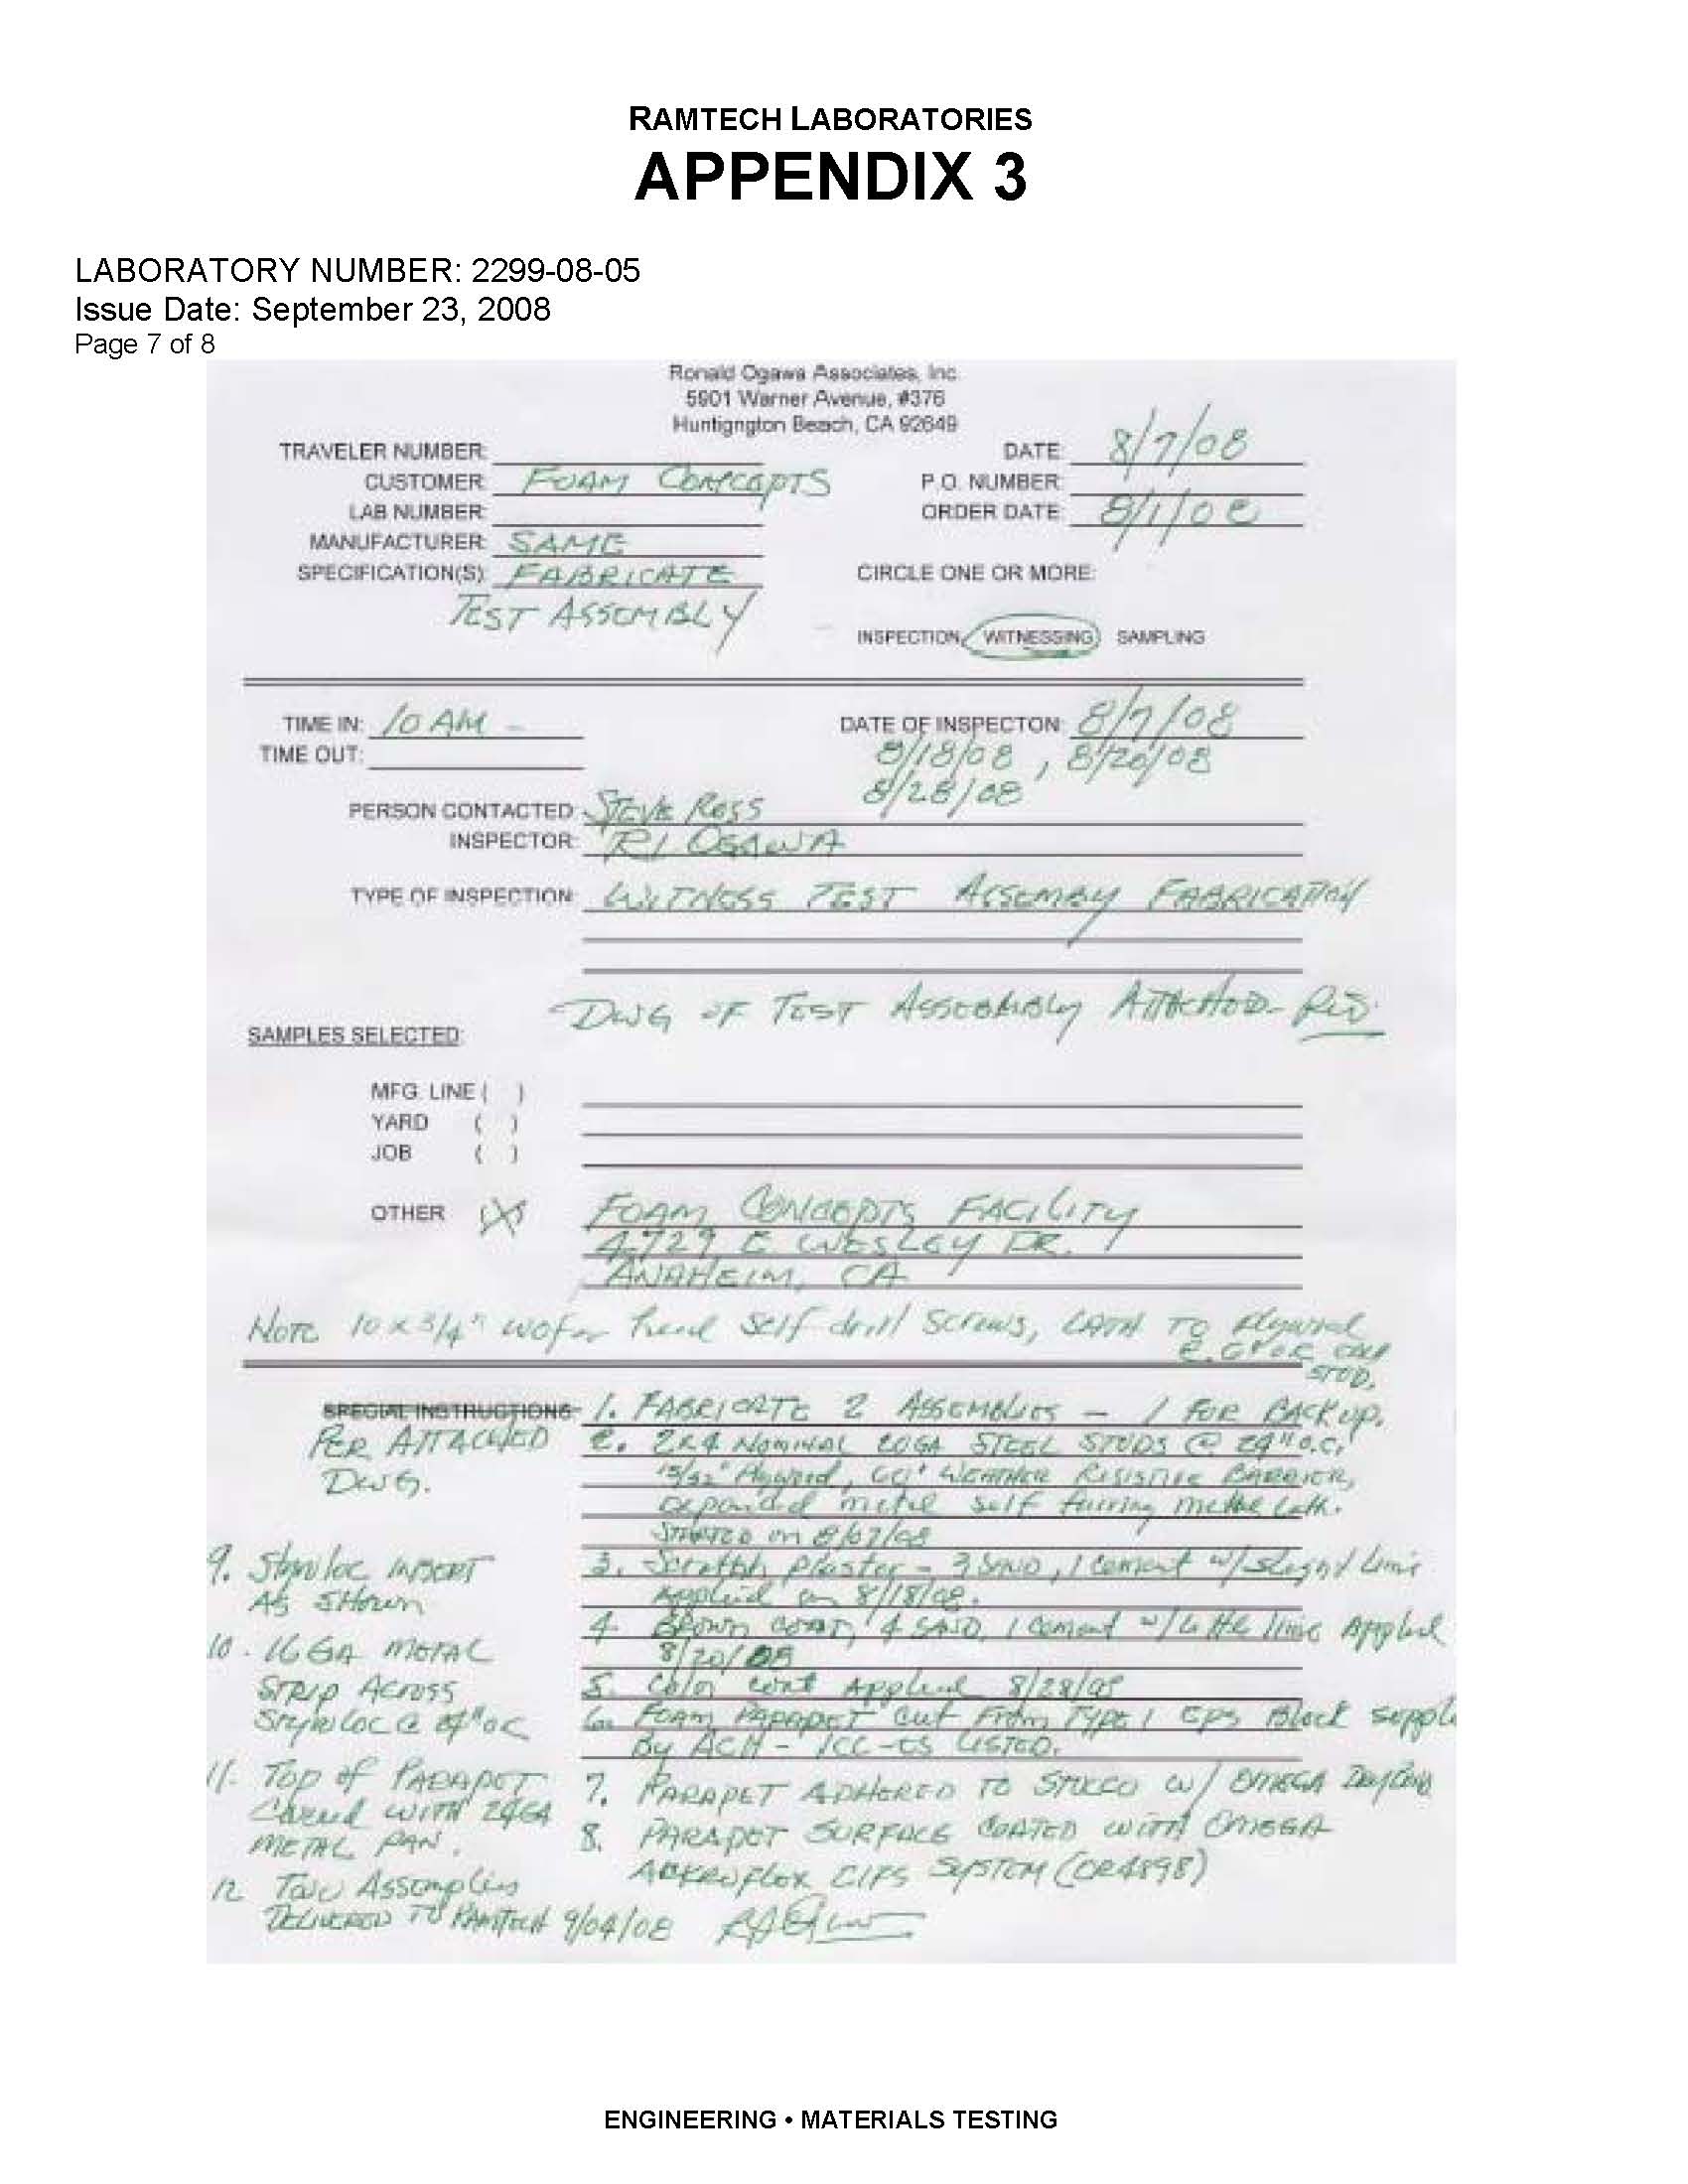 RAMTECH LABORATORIES
APPENDIX 3
LABORATORY NUMBER: 2299-08-05
Issue Date: September 23, 2008
Page 7 of 8
Ronald Ogawa Associates, Inc.
5901 Warner Avenue, #376
Huntigngton Beach, CA 92649
TRAVELER NUMBER:
DATE: 8/7/08
CUSTOMER: FOAM CONCEPTS
P.O. NUMBER:
LAB NUMBER:
ORDER DATE: 8/1/08
MANUFACTURER: SAME
SPECIFICATION(S): FABRICATE
TEST ASSEMBLY
CIRCLE ONE OR MORE:
INSPECTION, WITNESSING SAMPLING
TIME IN: 10 AM -
DATE OF INSPECTON: 8/7/08
TIME OUT:
8/18/08, 8/20/08
8/28/08
PERSON CONTACTED: STEVE ROSS
INSPECTOR: OGAWA
TYPE OF INSPECTION: WITNESS TEST ASSEMBY FABRICATION
DWG OF TEST ASSEMBLY ATTACHED-
SAMPLES SELECTED:
MFG. LINE ( )
YARD ( )
JOB ( )
OTHER (X) FOAM CONCEPTS FACILITY
4729 E WESLEY DR.
ANAHEIM, CA
NOTE 10 x 3/4" wafer head self drill screws, LATH TO plywood
STUD.
SPECIAL INSTRUCTIONS:
PER ATTACHED
DWG.
1. FABRICATE 2 ASSEMBLIES - 1 FOR BACKUP.
2. 2x4 NOMINAL 20GA STEEL STUDS @ 24" o.c.,
15/32" Plywood, WEATHER RESISTIVE BARRIER,
expanded metal self furring metal Lath.
STARTED on 8/07/08
3. Scratch plaster - 3 SAND, 1 cement w/
Applied on 8/18/08.
4. BROWN COAT, 4 SAND, 1 cement w/ little lime Applied
8/20/08
5. Color coat Applied 8/28/08
6. FOAM PARAPET cut From TYPE 1 EPS Block supplied
By ACH - ICC-ES LISTED.
7. PARAPET ADHERED TO STUCCO w/ OMEGA
8. PARAPET SURFACE COATED WITH OMEGA
AKROFLEX EIFS SYSTEM (ER4898)
9. Styroloc INSERT
AS SHOWN
10. 16 GA METAL
STRIP ACROSS
Styroloc @ 24" oc
11. TOP of PARAPET
Covered WITH 24GA
METAL PAN.
12 Two Assemplies
DELIVERED TO RAMTECH 9/04/08
ENGINEERING • MATERIALS TESTING